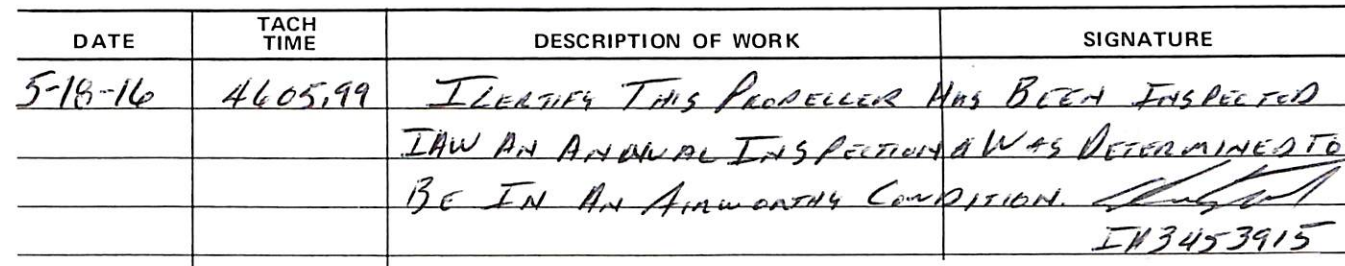 DATE TACH TIME DESCRIPTION OF WORK SIGNATURE
5-18-16 4605.99 I CERTIFY THIS PROPELLER HAS BEEN INSPECTED
IAW AN ANNUAL INSPECTION & WAS DETERMINED TO
BE IN AN AIRWORTHY CONDITION.
IA3453915